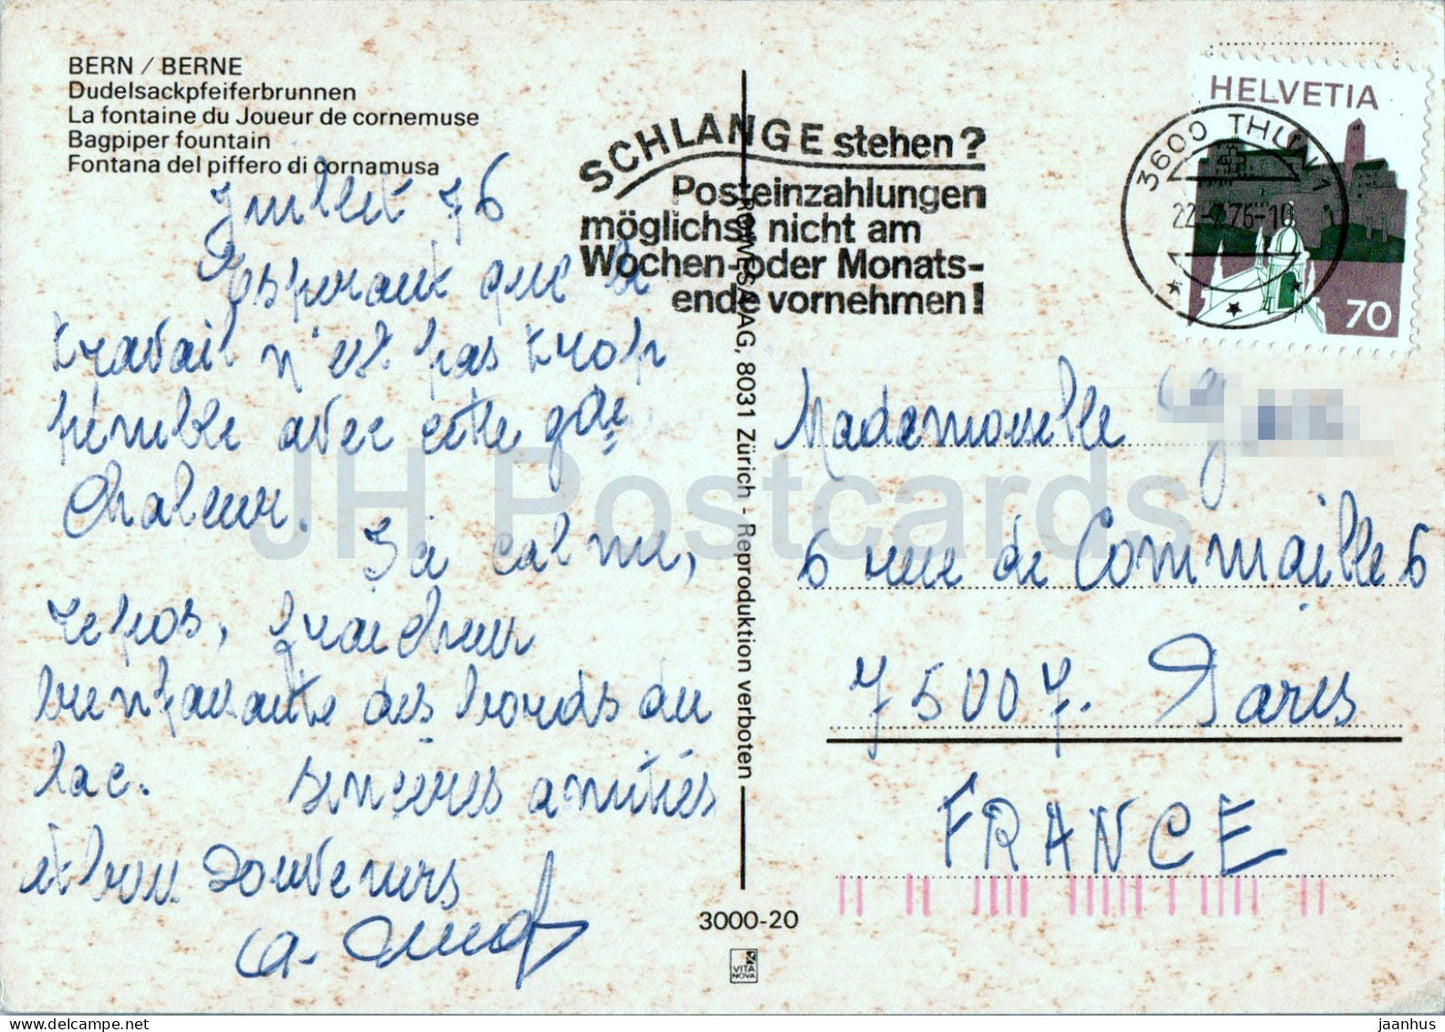 BERN / BERNE
Dudelsackpfeiferbrunnen
La fontaine du Joueur de cornemuse
Bagpiper fountain
Fontana del piffero di cornamusa
Juillet 76
J'esperant que le
travail n'est pas trop
pénible avec cette gde
Chaleur.
Ici calme,
repos, fraicheur
bienfaisante des bords du
lac. sincères amitiés
et bon souvenirs
a.
SCHLANGE stehen?
Posteinzahlungen
möglichst nicht am
Wochen- oder Monats-
ende vornehmen!
3600 THUN 1
22-7.76-10
4
HELVETIA
70
AG, 8031 Zürich - Reproduktion verboten
Mademoiselle
6 rue de Commaille 6
75007. Paris
FRANCE
3000-20
VITA
NOVA
JH Postcards
jaanhus